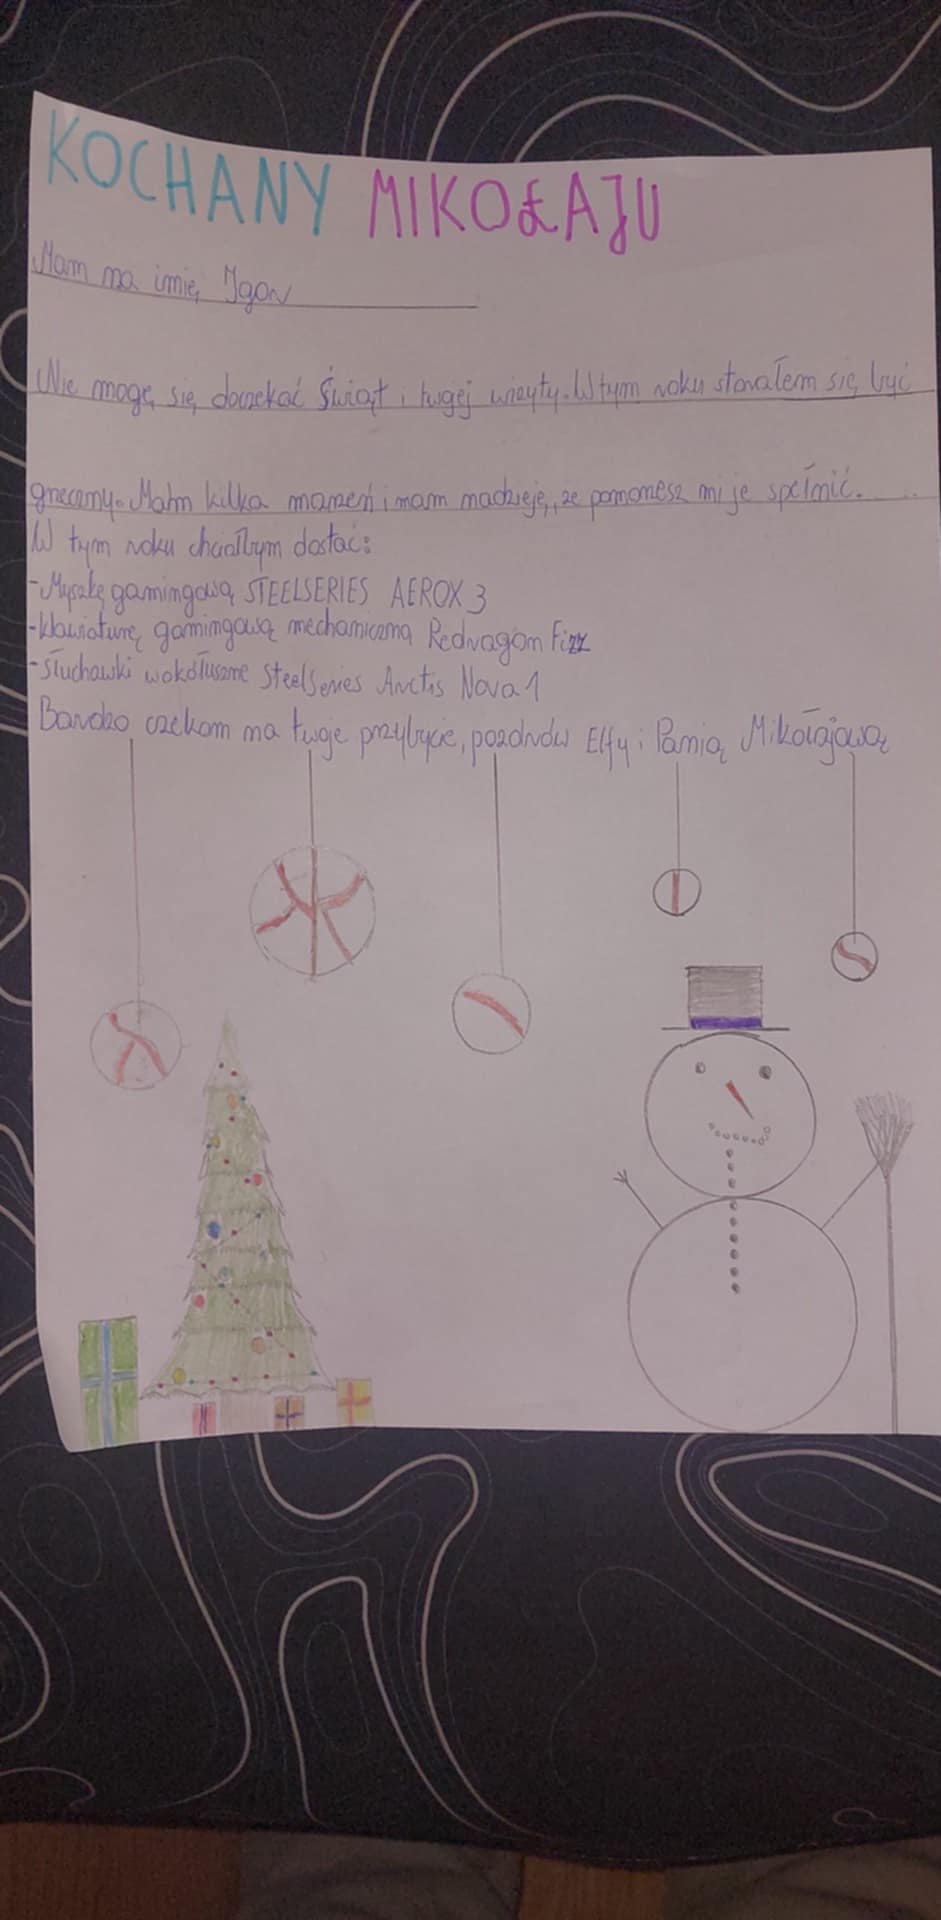 KOCHANY MIKOŁAJU
Mam na imię Igor
Nie mogę się doczekać Świąt i twojej wizyty. W tym roku starałem się być
grzeczny. Mam kilka marzeń i mam nadzieję, że pomożesz mi je spełnić.
W tym roku chciałbym dostać:
-Myszkę gamingową STEELSERIES AEROX 3
-klawiaturę gamingową mechaniczną Redragon Fizz
-Słuchawki wokółuszne SteelSeries Arctis Nova 1
Bardzo czekam na twoje przybycie, pozdrów Elfy i Panią Mikołajową